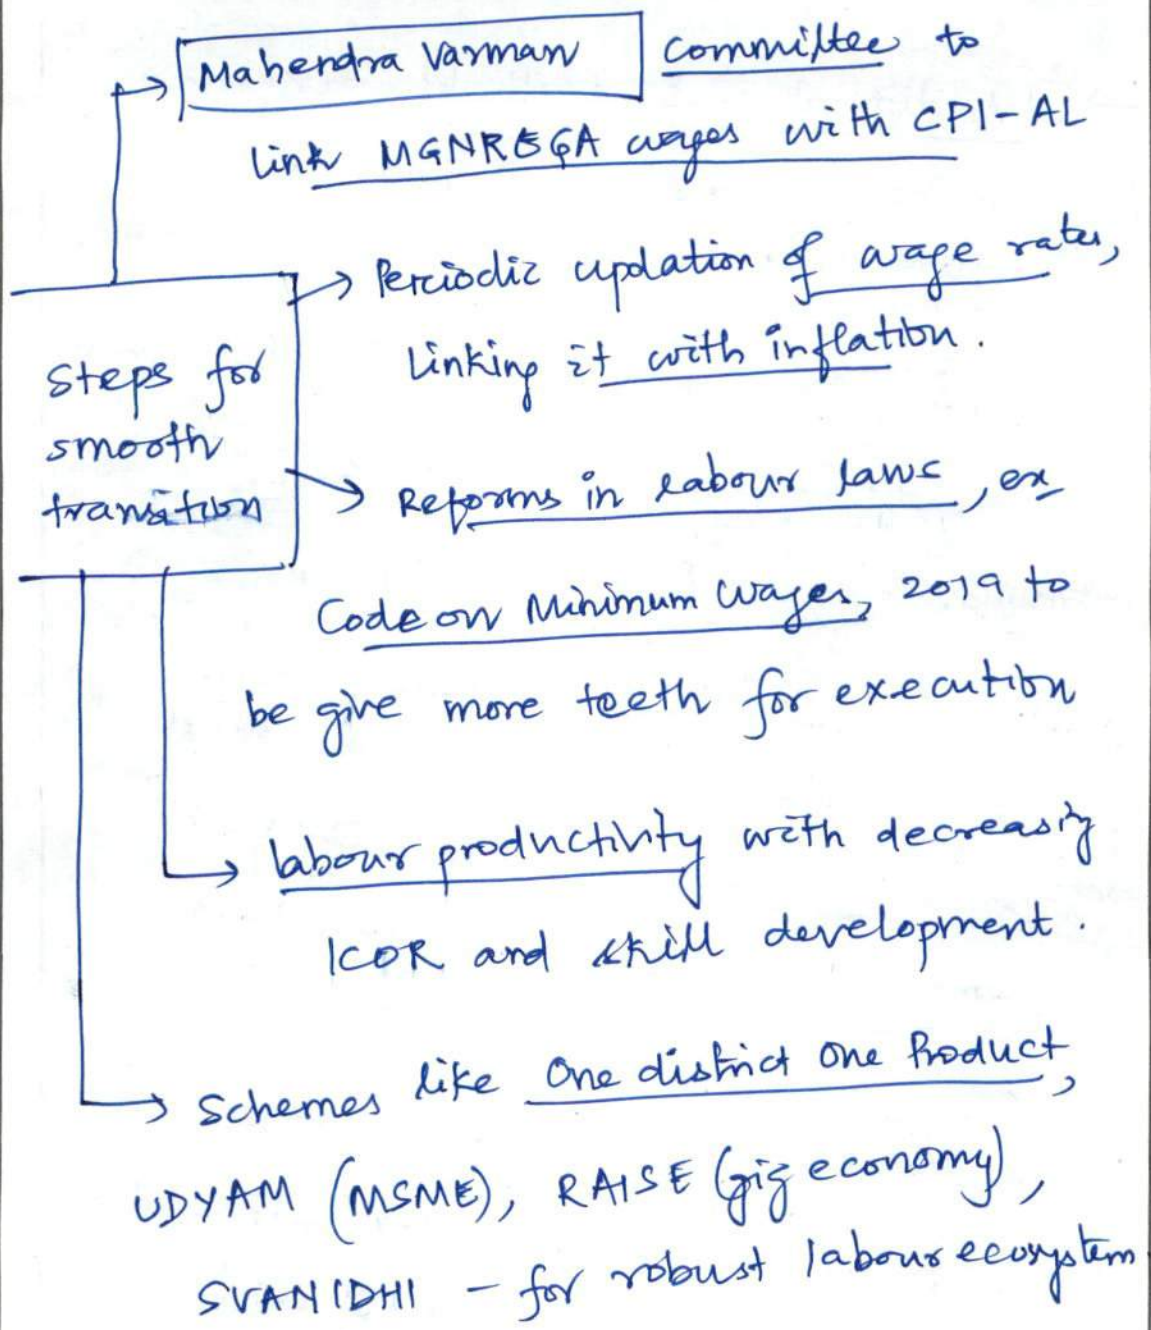 Mahendra Varman committee to
link MGNREGA wages with CPI-AL
Periodic updation of wage rates,
linking it with inflation.
Steps for
smooth
transition
Reforms in labour laws, ex
Code on Minimum Wages, 2019 to
be give more teeth for execution
labour productivity with decreasing
ICOR and skill development.
Schemes like One district One Product,
UDYAM (MSME), RAISE (gig economy),
SVANIDHI - for robust labour ecosystem